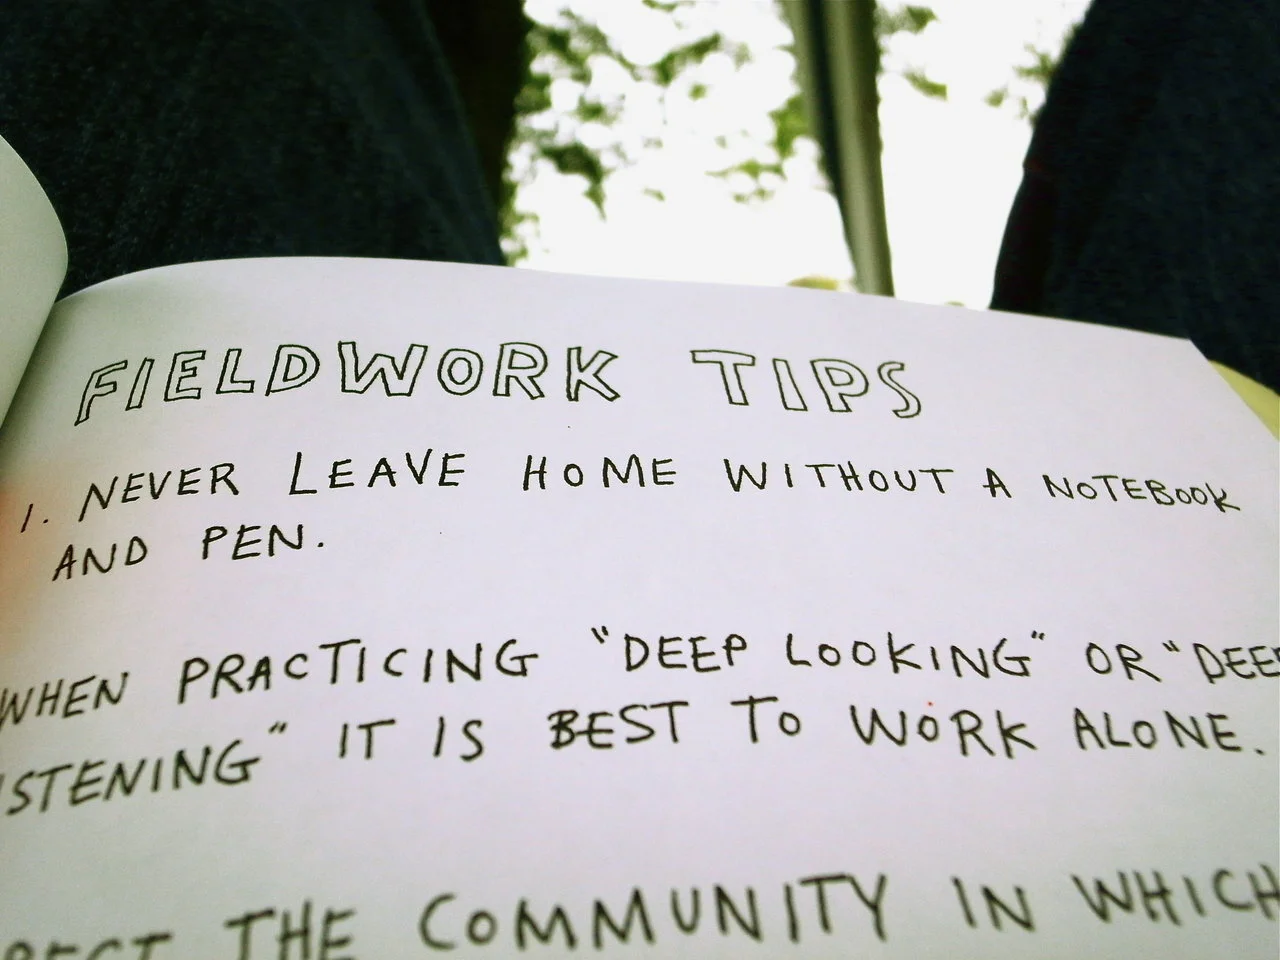 FIELDWORK TIPS
1. NEVER LEAVE HOME WITHOUT A NOTEBOOK
AND PEN.
WHEN PRACTICING "DEEP LOOKING" OR "DEEP
ISTENING" IT IS BEST TO WORK ALONE.
THE COMMUNITY IN WHICH